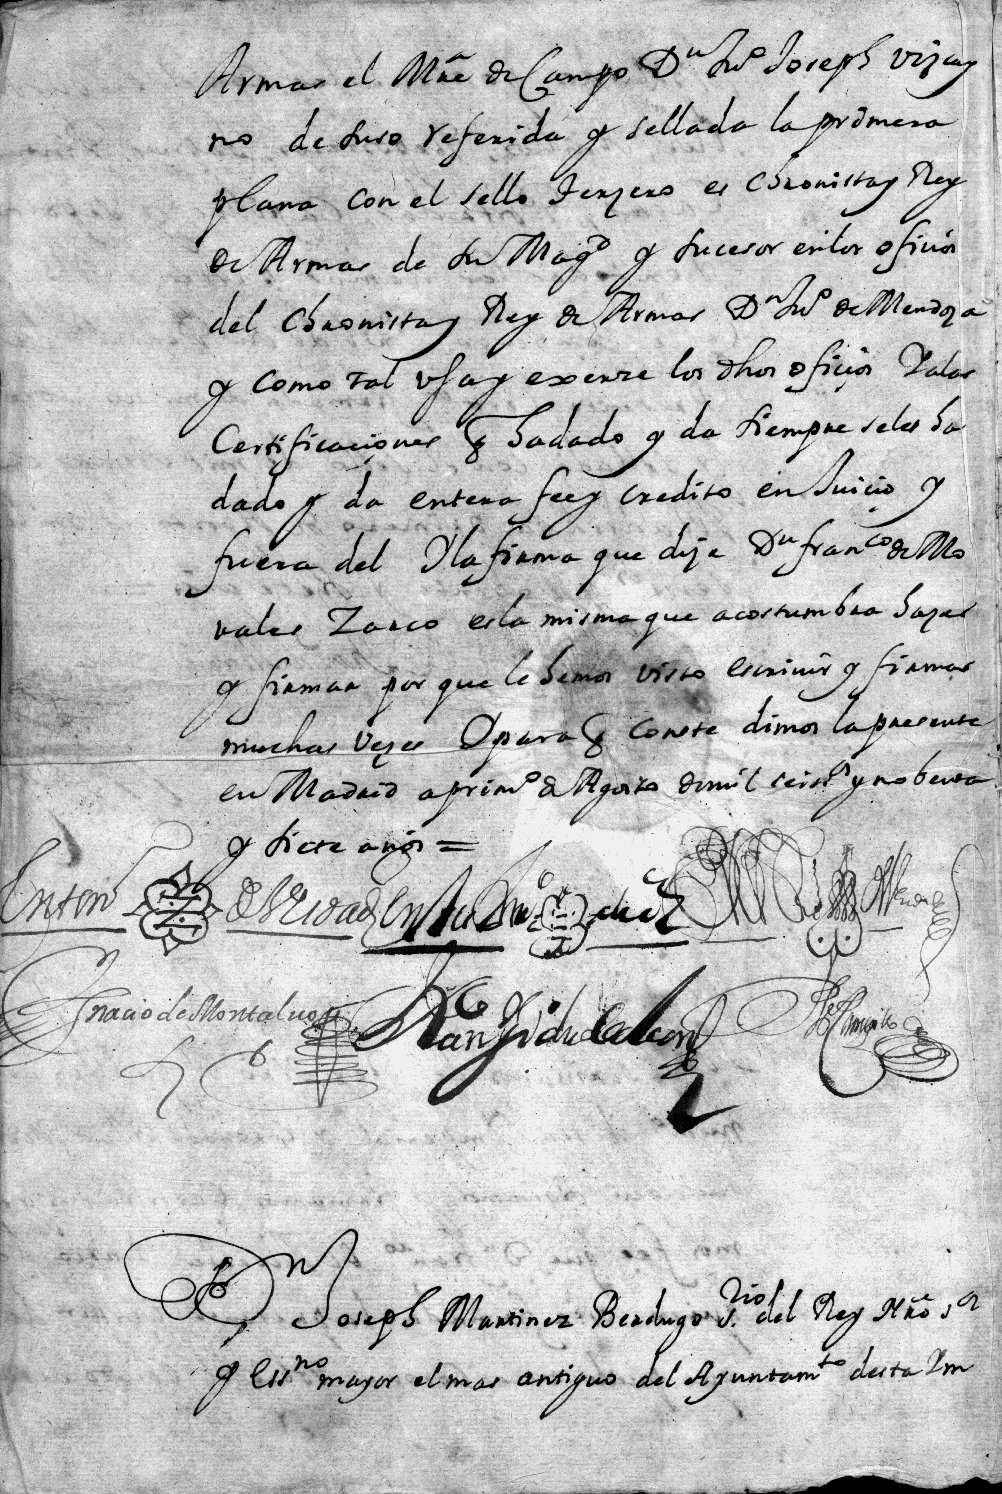 Armas el Mrẽ de Campo Dn Juo Joseph Vizcay
no de suso referida y sellada la primera
plana con el sello terzero es Chronista y Rey
de Armas de Su Magd y sucesor en los oficios
del Chronista y Rey de Armas Dn Juo de Mendoza
y como tal usa y exerze los dhos oficios Y alas
Certificaciones q hadado y da siempre seles ha
dado y da entera fee y credito en Juicio y
fuera del Y la firma que dize Dn franco de Mo
rales Zarco es la misma que acostumbra hazer
y firmar por que le hemos visto escriuir y firmar
muchas Vezes Y para q conste dimos la presente
en Madrid a primo de Agosto de mil seiss y nobenta
y siete años =
En testimo de Verdad
Ignacio de Montaluo
Dn Joseph Martinez Berdugo S.rio del Rey Nrõ sr
y Essno mayor el mas antiguo del Ayuntamto desta Im